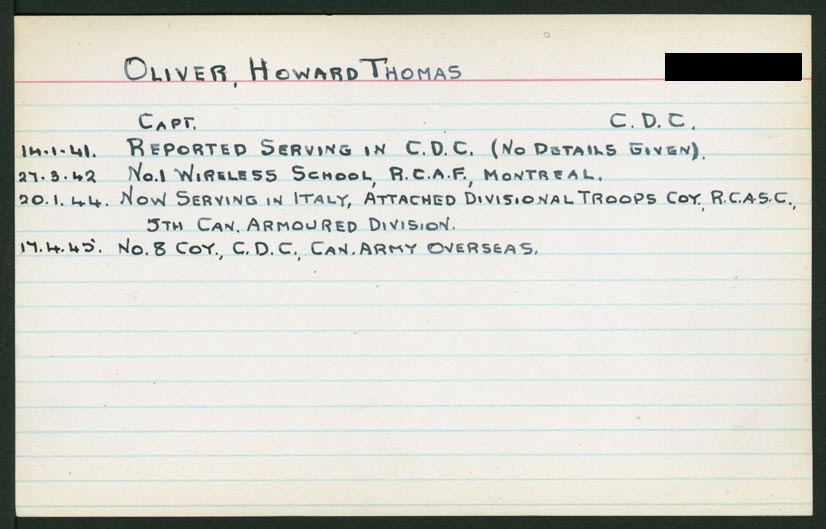 OLIVER, HOWARD THOMAS
CAPT. C.D.C.
14.1.41. REPORTED SERVING IN C.D.C. (NO DETAILS GIVEN).
27.3.42 NO.1 WIRELESS SCHOOL, R.C.A.F., MONTREAL.
20.1.44. NOW SERVING IN ITALY, ATTACHED DIVISIONAL TROOPS COY, R.C.A.S.C.,
5TH CAN. ARMOURED DIVISION.
17.4.45. NO.8 COY., C.D.C., CAN. ARMY OVERSEAS.